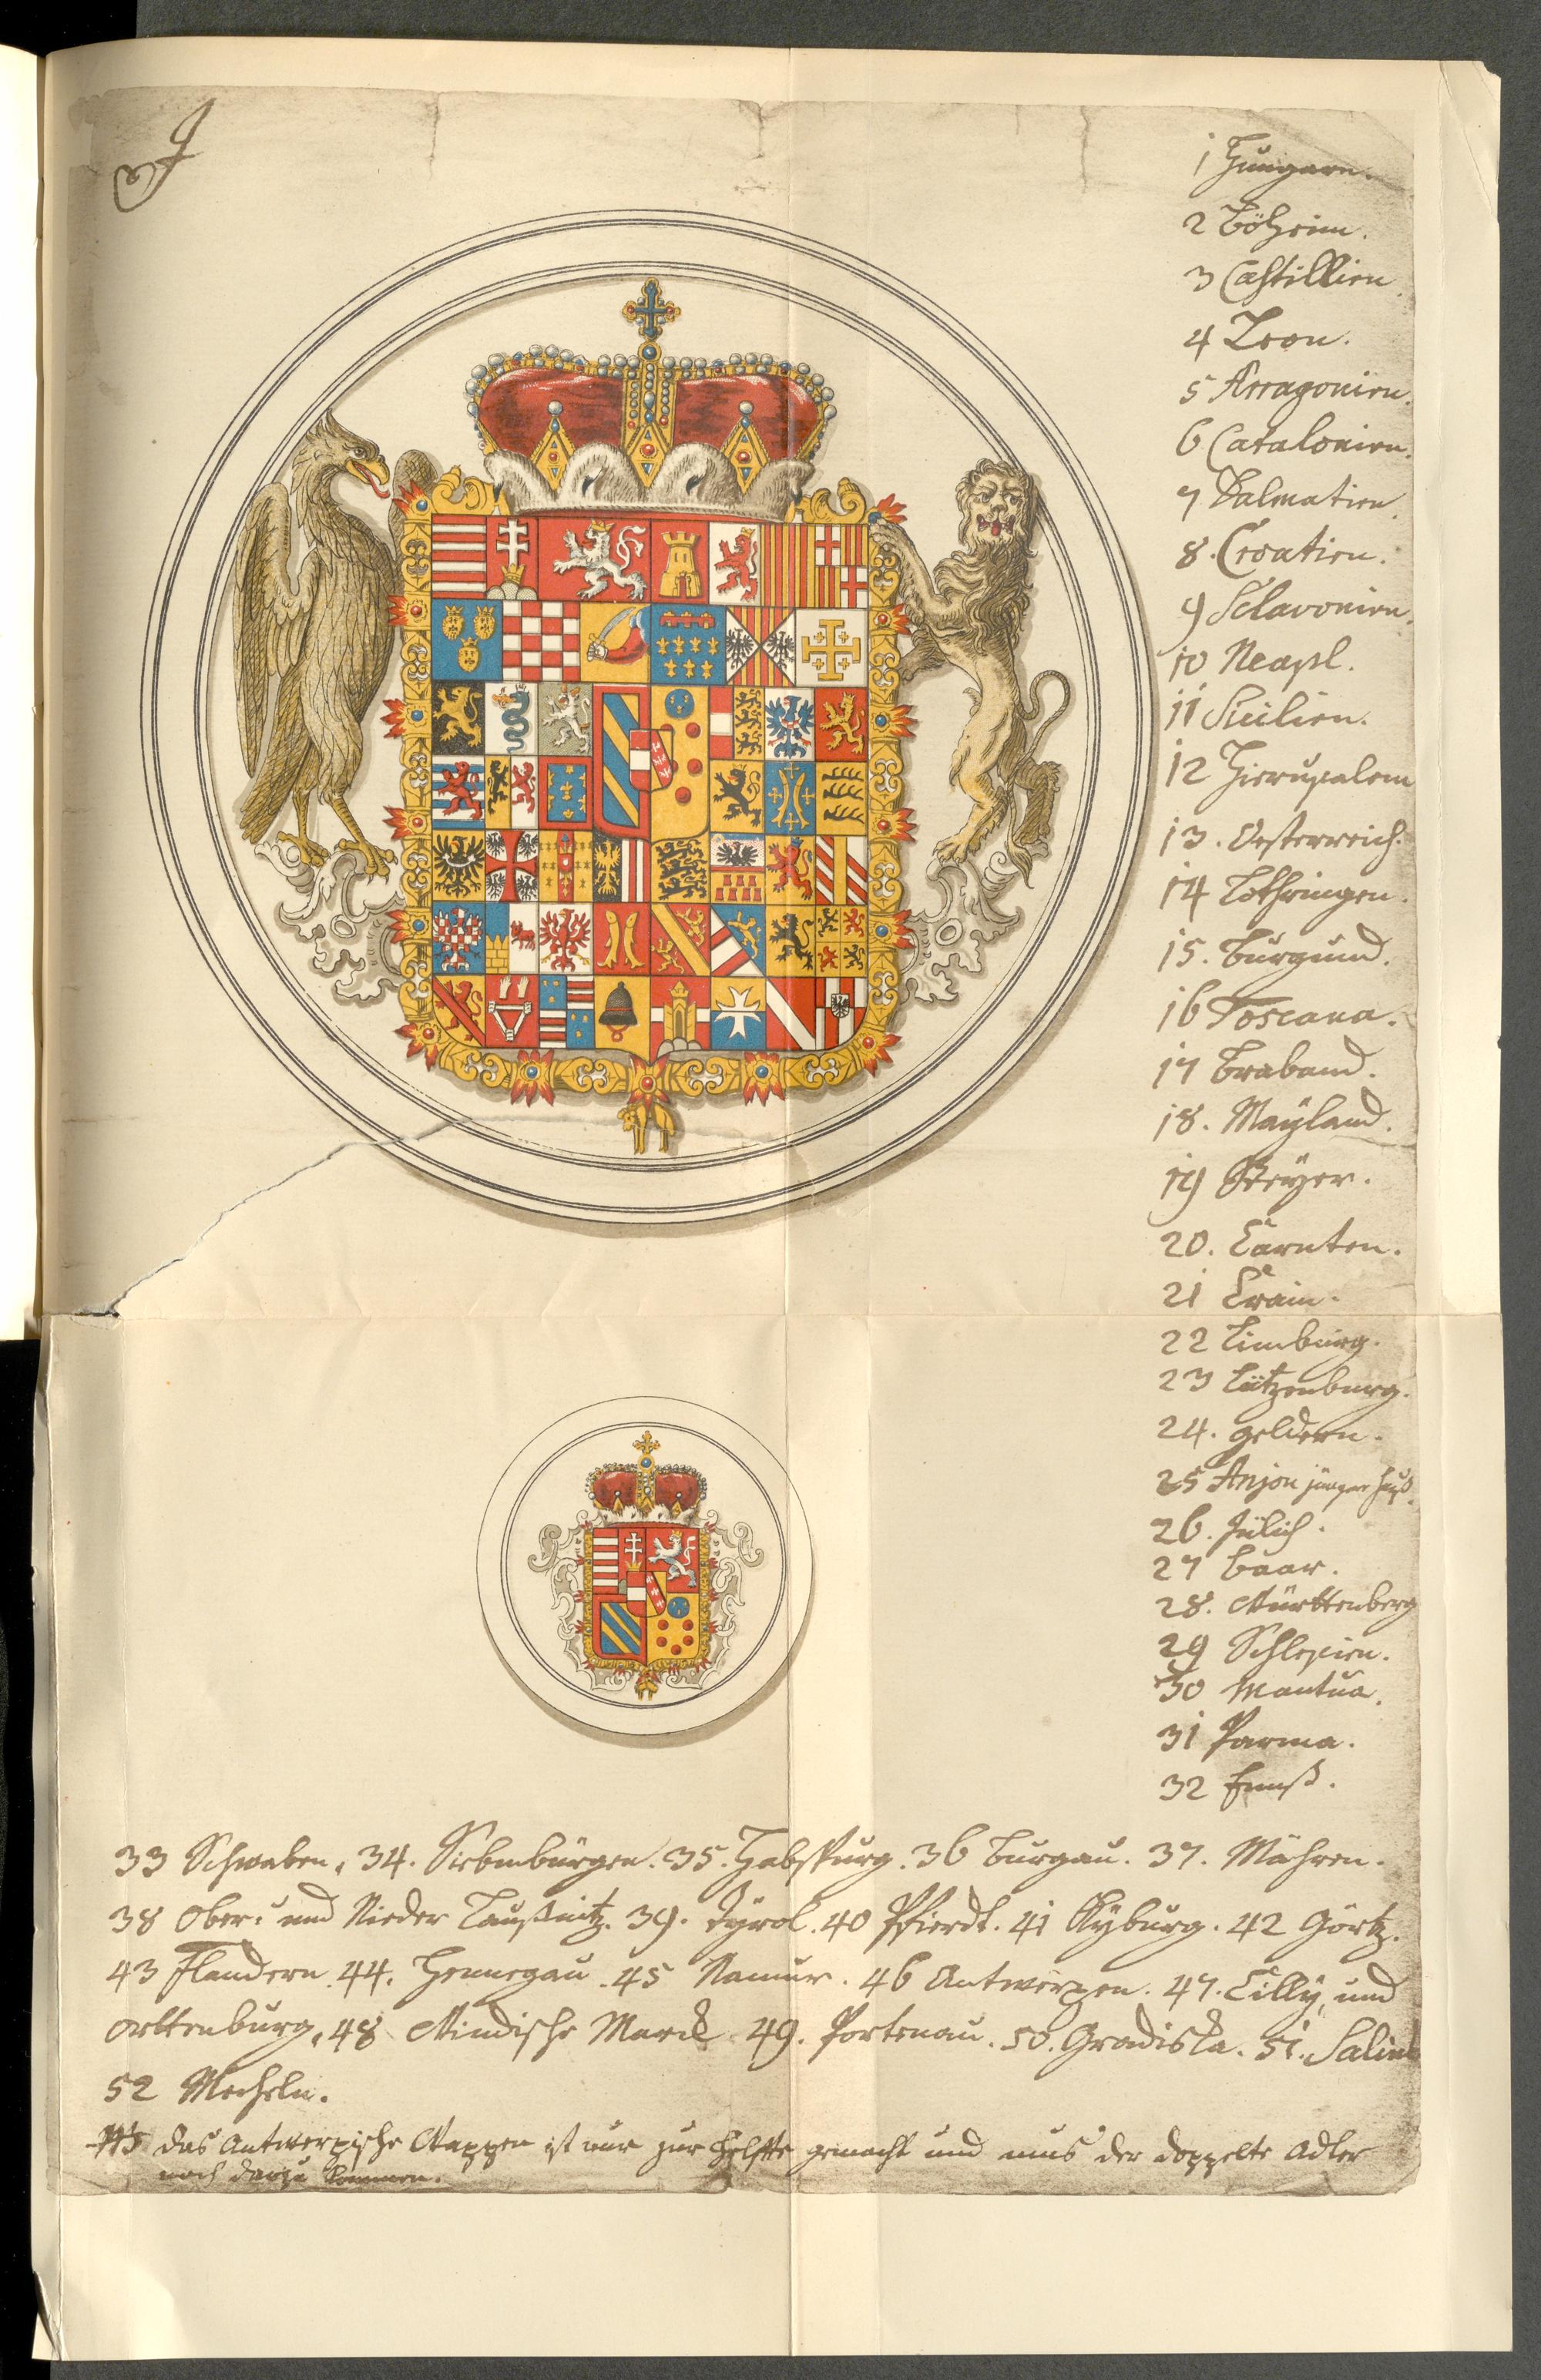 J
1 Hungarn.
2 Böheim.
3 Castillien
4 Leon.
5 Arragonien.
6 Catalonien.
7 Dalmatien.
8. Croatien.
9 Sclavonien.
10 Neapl.
11 Sicilien.
12 Hierusalem
13. Oesterreich.
14 Lothringen.
15. Burgund.
16 Toscana.
17 Braband.
18. Mayland.
19 Steyer.
20. Cärnten.
21 Crain.
22 Limburg.
23 Lützenburg.
24. geldern.
25 Anjou jünger Hauß.
26. Jülich.
27 Baar.
28. Württenberg
29 Schlesien.
30 Mantua.
31 Parma.
32 Ennß.
33 Schwaben, 34. Siebenbürgen. 35. Habspurg. 36 Burgau. 37. Mähren.
38 Ober- und Nieder Laußnitz. 39. Tÿrol. 40 Pfierdt. 41 Kÿburg. 42 Görtz.
43 Flandern 44. Hennegau. 45 Namur. 46 Antwerpen. 47. Cilly, und
Orttenburg, 48 Windische Marck 49. Portenau. 50. Gradiska. 51. Salins
52 Mecheln.
NB das Antwerpische Wappen ist nur zur Helffte gemacht und mus der doppelte Adler
noch darzu kommen.